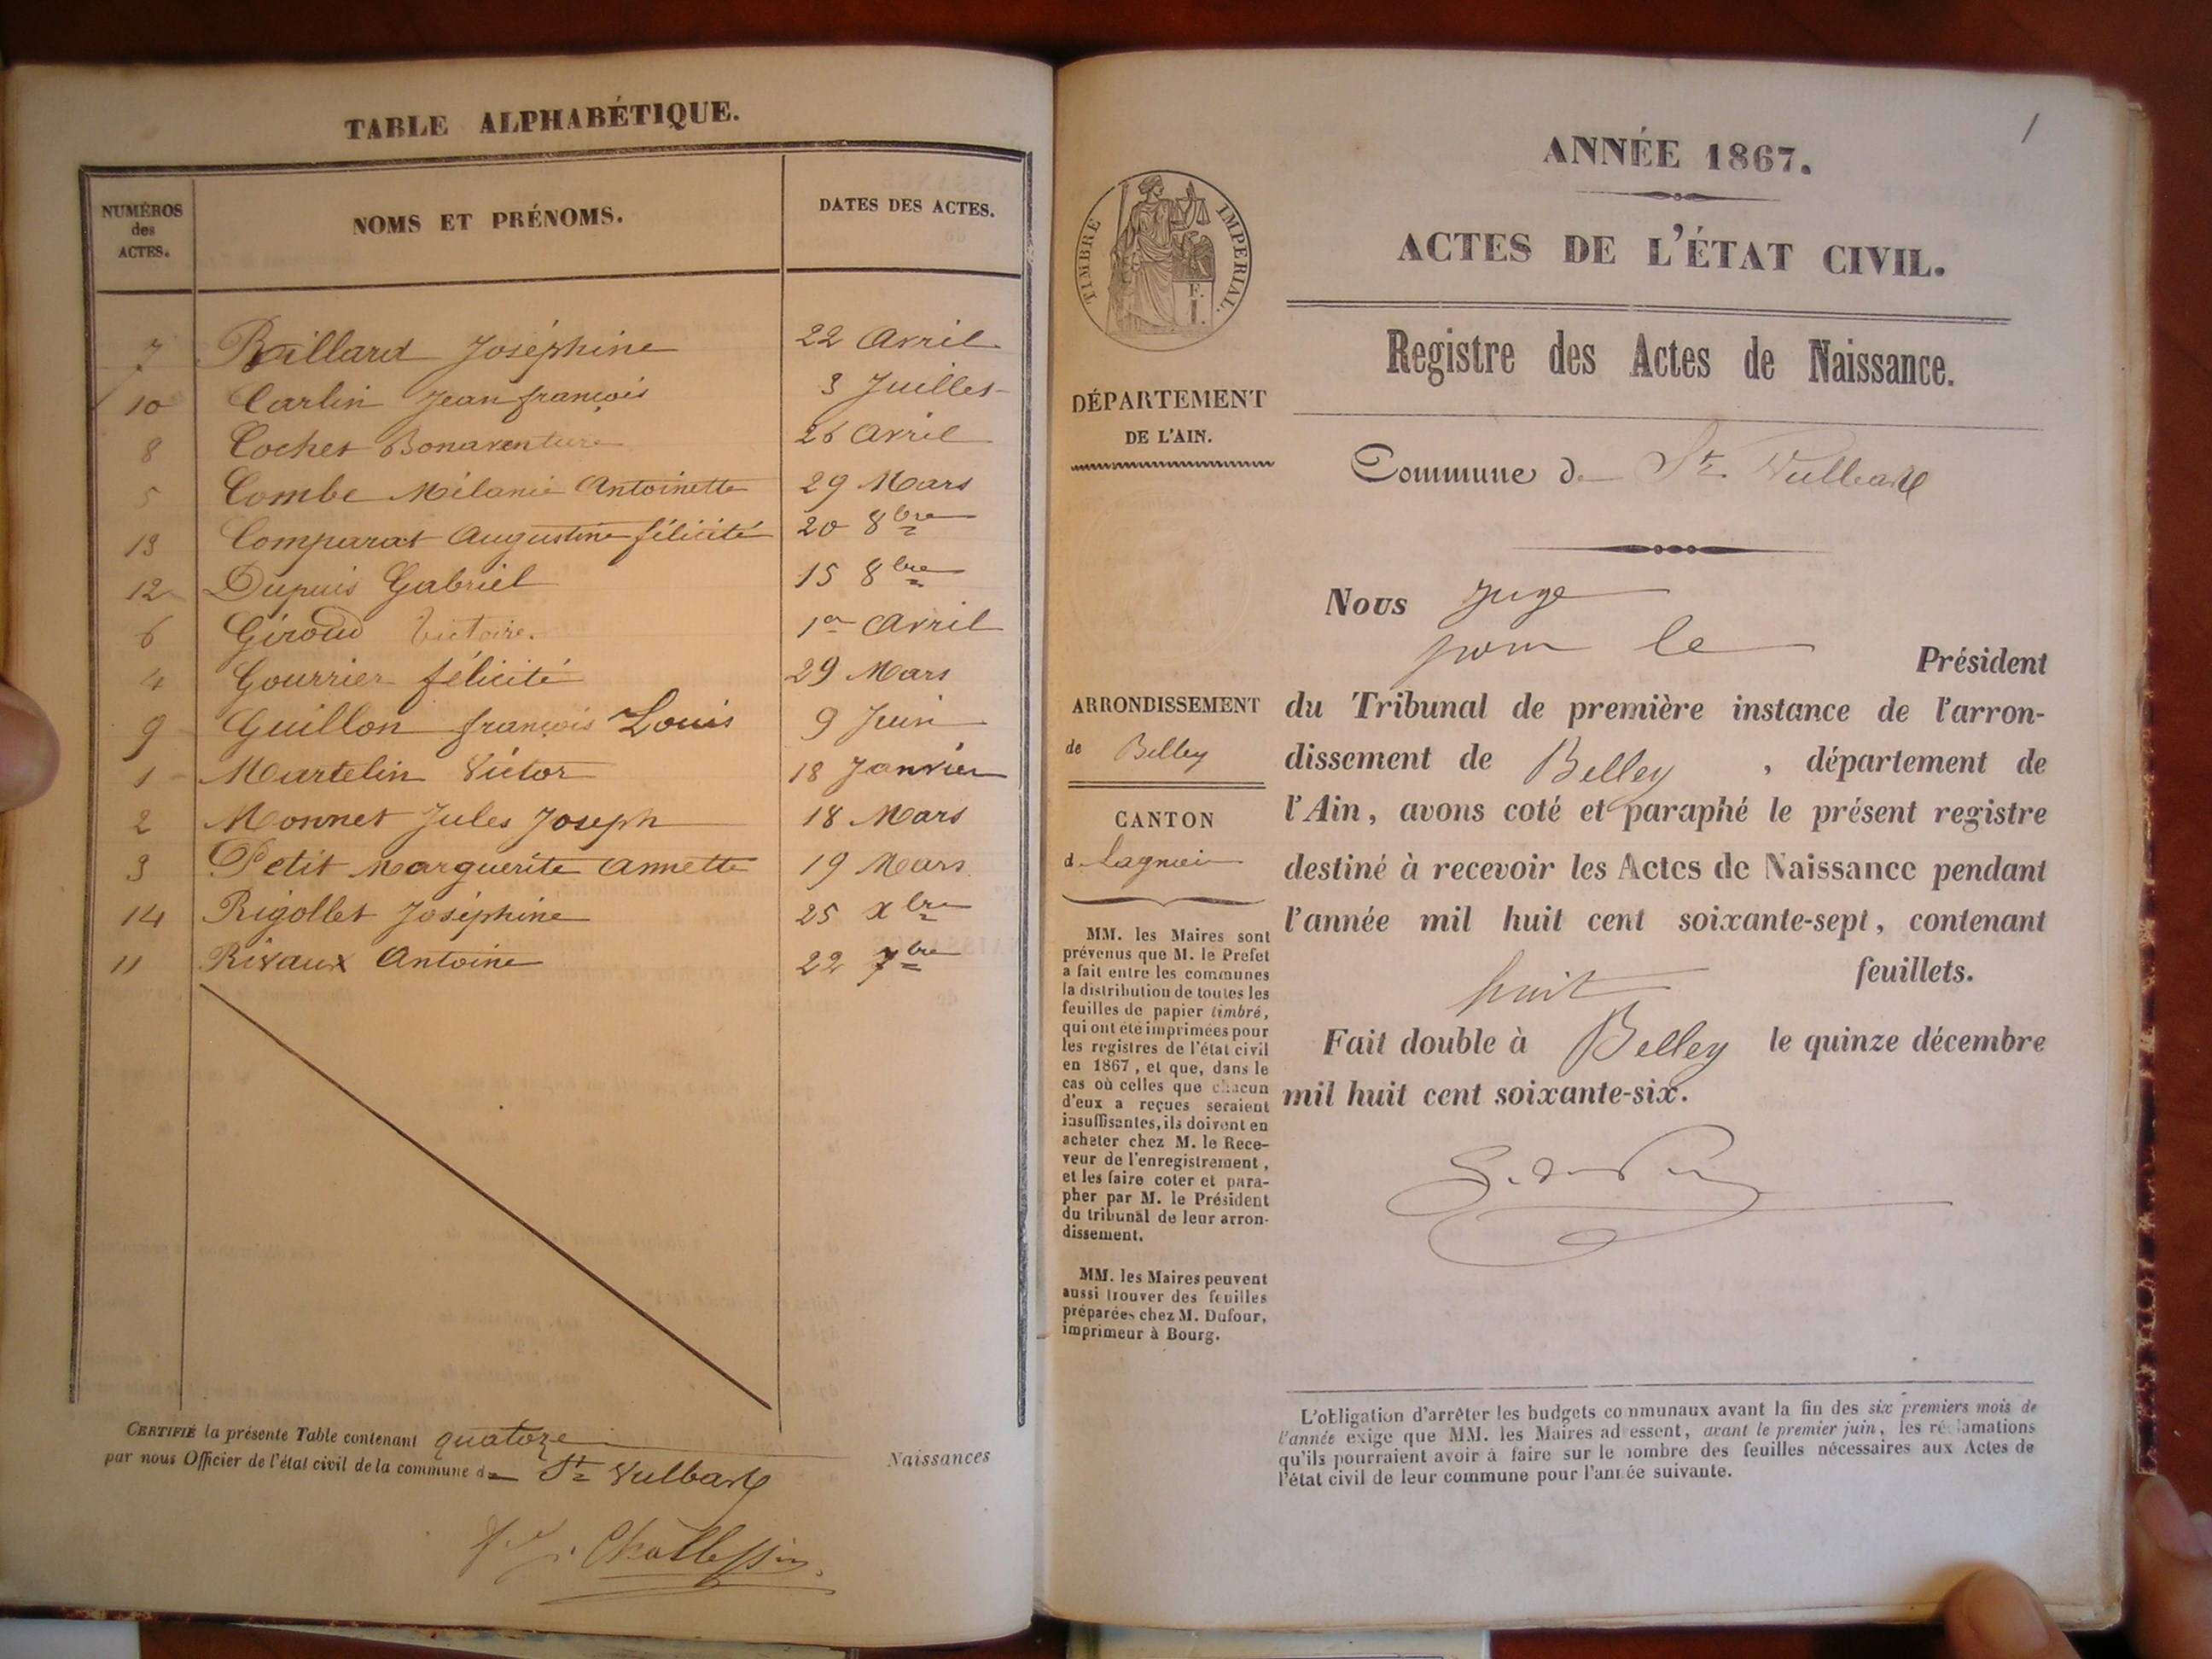 TABLE ALPHABÉTIQUE.
NUMÉROS des ACTES.
NOMS ET PRÉNOMS.
DATES DES ACTES.
7 Baillard Joséphine 22 Avril
10 Carlin Jean françois 3 Juillet
8 Cochet Bonaventure 26 Avril
5 Combe Mélanie Antoinette 29 Mars
13 Comparat Augustine félicité 20 8bre
12 Dupuis Gabriel 15 8bre
6 Giroud Victoire. 1er Avril
4 Gourrier félicité 29 Mars
9 Guillon françois Louis 9 Juin
1 Martelin Victor 18 Janvier
2 Monnet Jules Joseph 18 Mars
3 Petit Marguerite Annette 19 Mars
14 Rigollet Joséphine 25 xbre
11 Rivaux Antoine 22 7bre
CERTIFIÉ la présente Table contenant quatorze Naissances
par nous Officier de l'état civil de la commune de St Vulbas
1
ANNÉE 1867.
ACTES DE L'ÉTAT CIVIL.
Registre des Actes de Naissance.
Commune de St. Vulbas
TIMBRE IMPÉRIAL.
F.
1.
DÉPARTEMENT
DE L'AIN.
ARRONDISSEMENT
de Belley
CANTON
de Lagnieu
MM. les Maires sont
prévenus que M. le Prefet
a fait entre les communes
la distribution de toutes les
feuilles de papier timbré,
qui ont été imprimées pour
les registres de l'état civil
en 1867, et que, dans le
cas où celles que chacun
d'eux a reçues seraient
insuffisantes, ils doivent en
acheter chez M. le Rece-
veur de l'enregistrement,
et les faire coter et para-
pher par M. le Président
du tribunal de leur arron-
dissement.
MM. les Maires peuvent
aussi trouver des feuilles
préparées chez M. Dufour,
imprimeur à Bourg.
Nous Juge
pour le Président
du Tribunal de première instance de l'arron-
dissement de Belley, département de
l'Ain, avons coté et paraphé le présent registre
destiné à recevoir les Actes de Naissance pendant
l'année mil huit cent soixante-sept, contenant
huit feuillets.
Fait double à Belley le quinze décembre
mil huit cent soixante-six.
L'obligation d'arrêter les budgets communaux avant la fin des six premiers mois de
l'année exige que MM. les Maires adressent, avant le premier juin, les réclamations
qu'ils pourraient avoir à faire sur le nombre des feuilles nécessaires aux Actes de
l'état civil de leur commune pour l'année suivante.